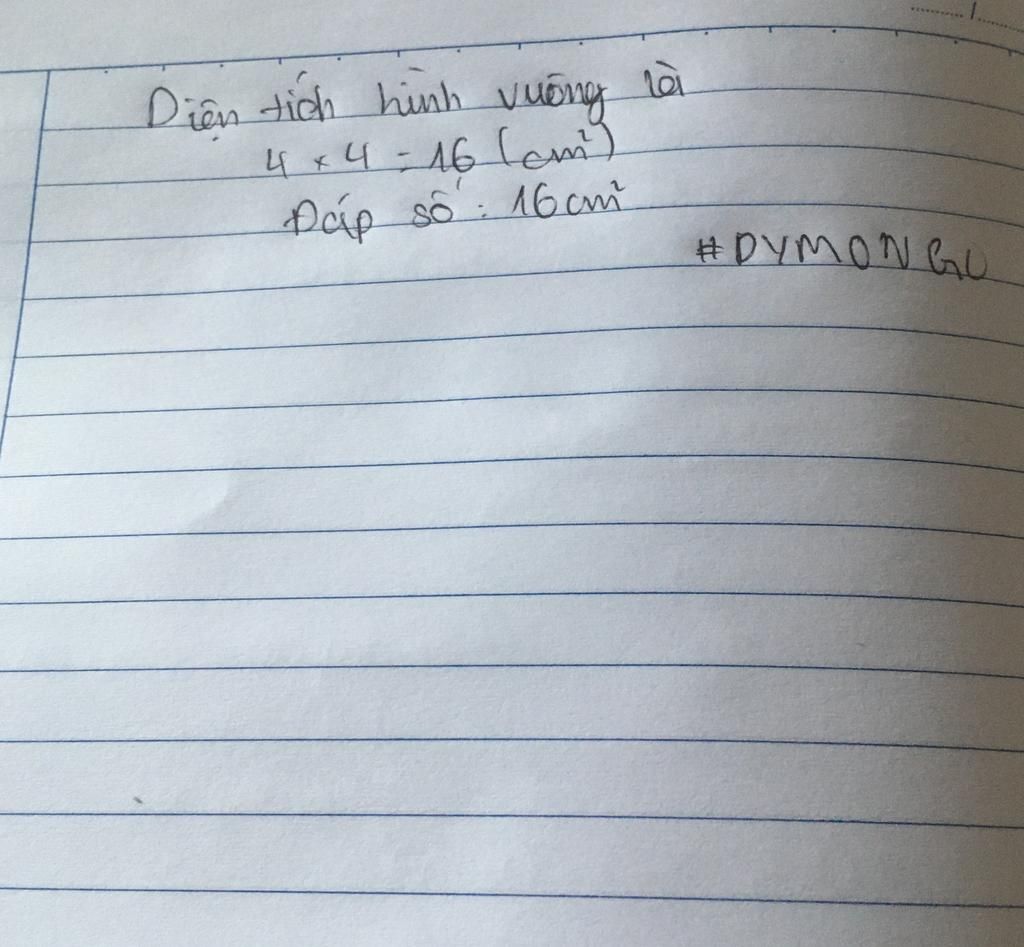 Diện tích hình vuông là
4 x 4 = 16 (cm²)
Đáp số : 16 cm²
#DYMONGU